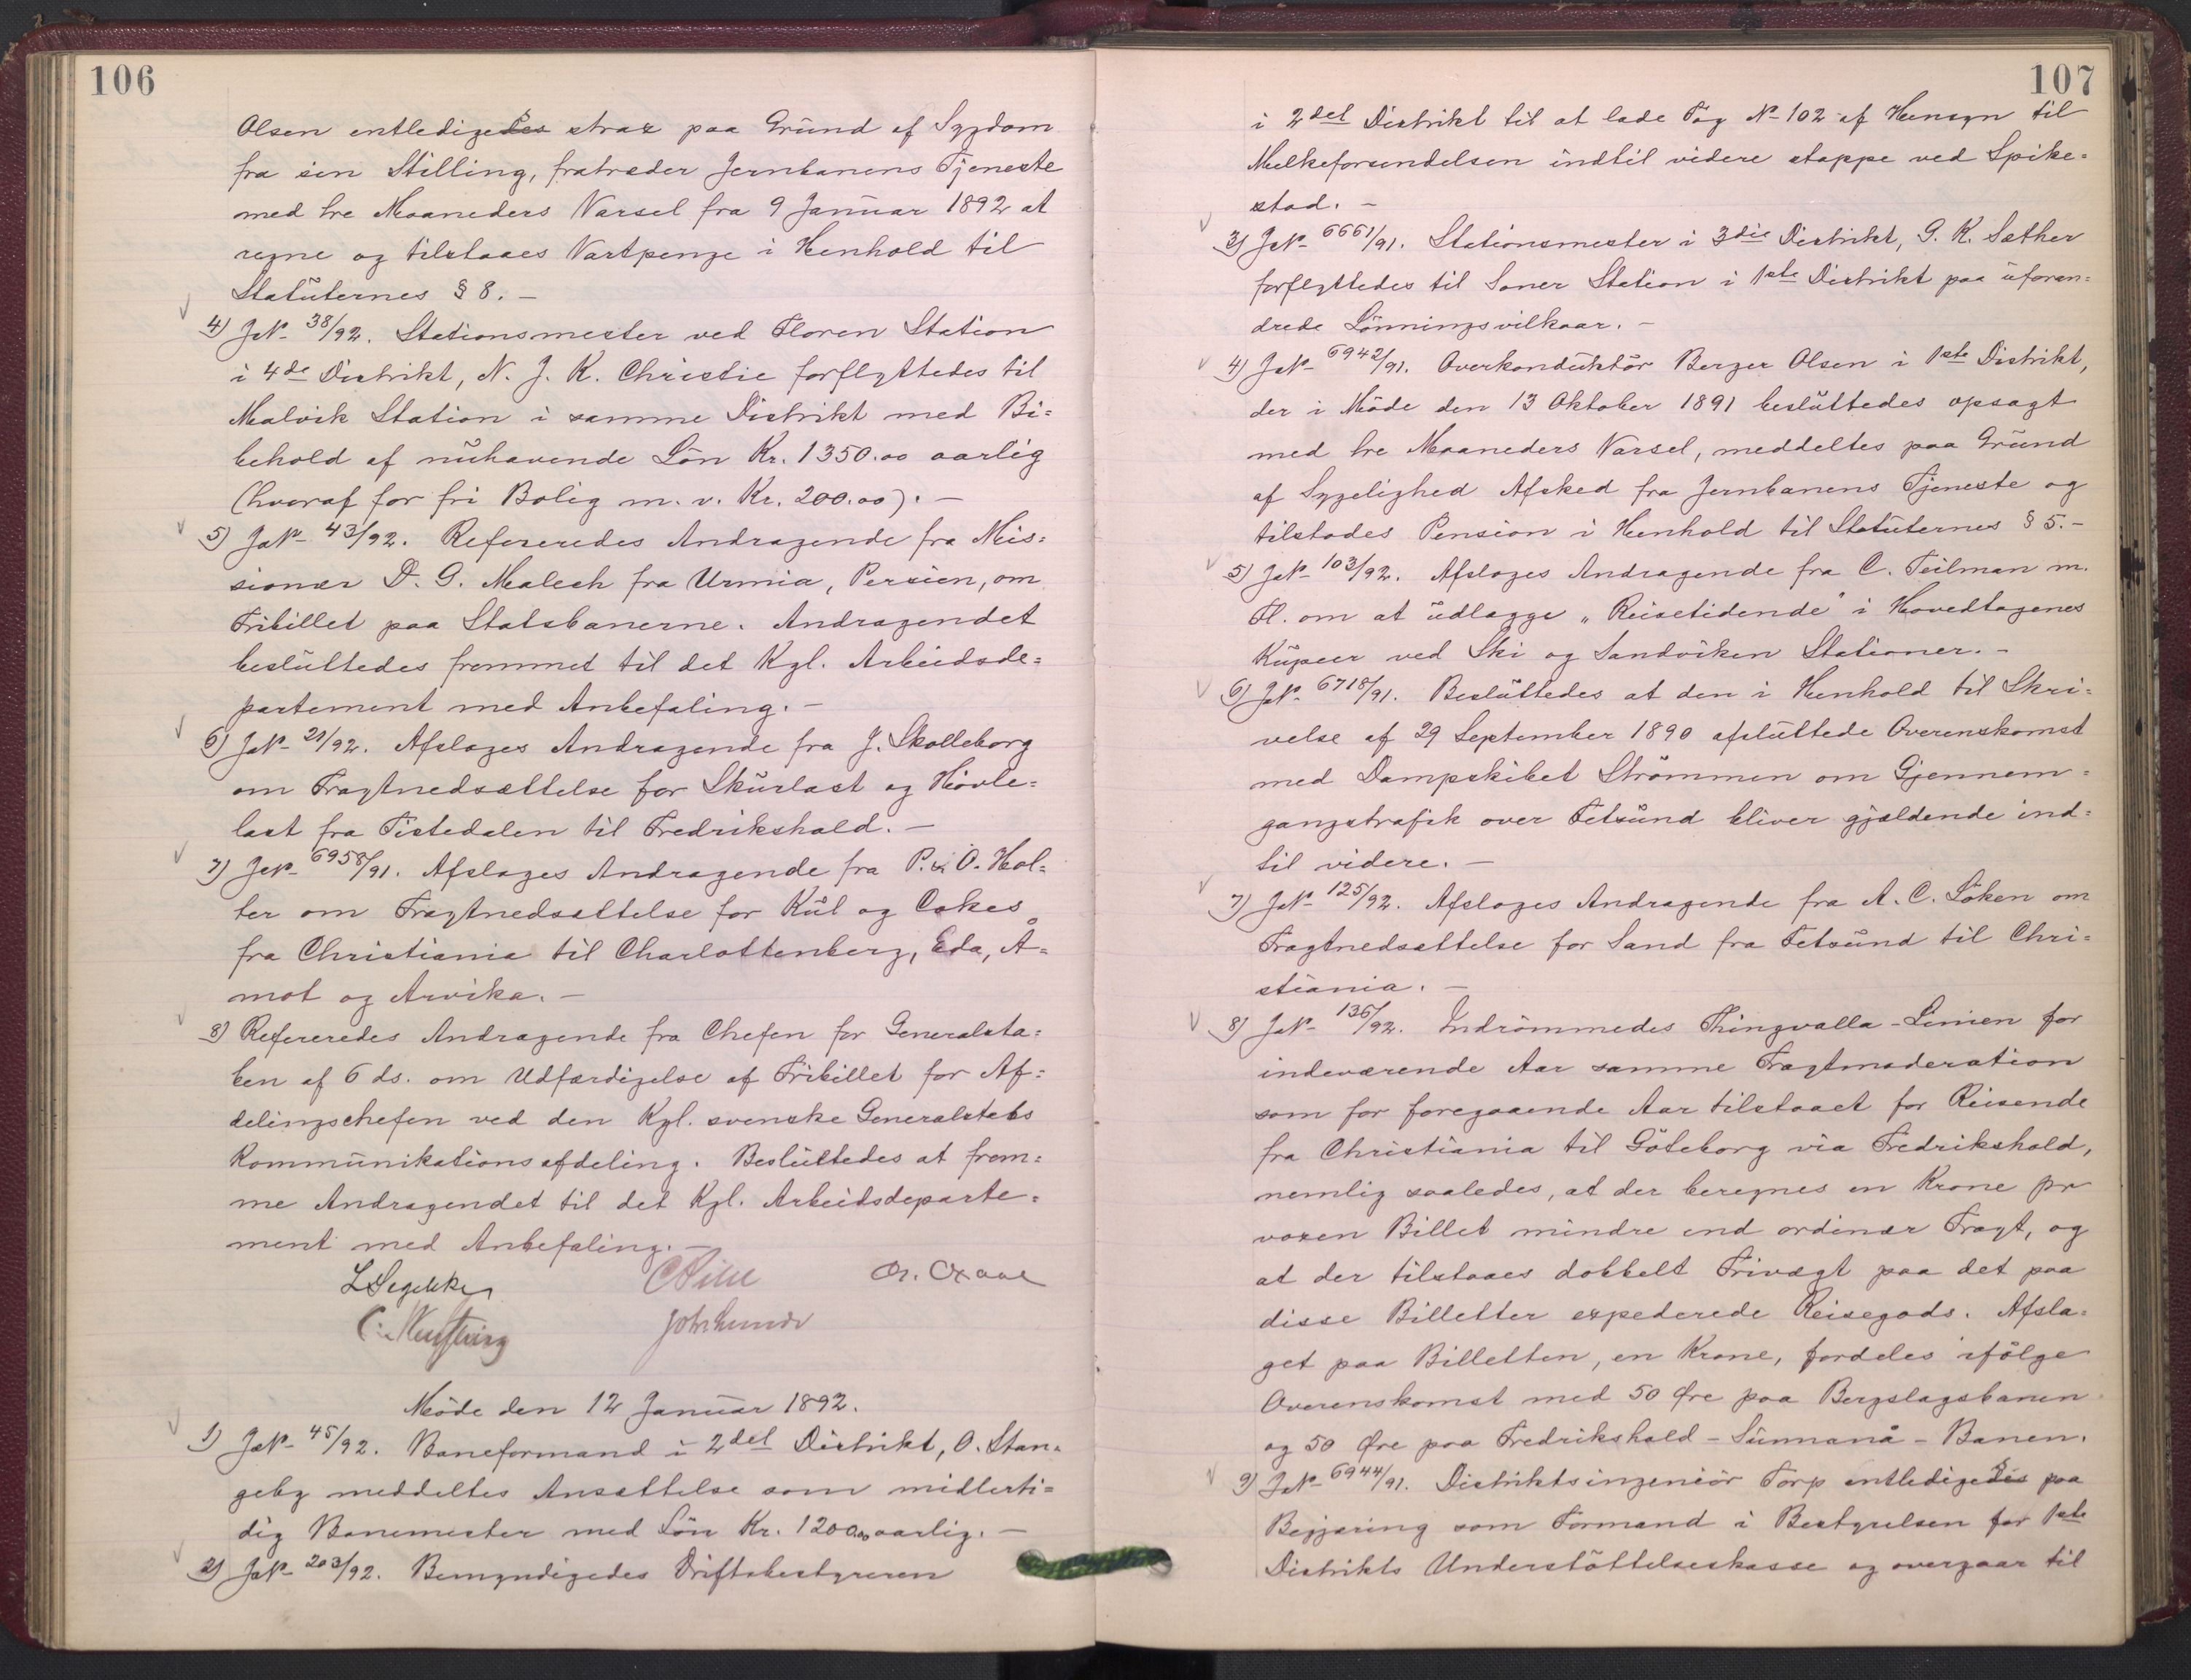 106
Olsen entledigedes strax paa Grund af Sygdom
fra sin Stilling, fratræder Jernbanens Tjeneste
med tre Maaneders Varsel fra 9 Januar 1892 at
regne og tilstaaes Vartpenge i Henhold til
Statuternes § 8. –
4) JN– 38/92. Stationsmester ved Floren Station
i 4de Distrikt, N. J. K. Christie forflyttedes til
Malvik Station i samme Distrikt med Bi=
behold af nuhavende Lön Kr. 1350.00 aarlig
(hvoraf for fri Bolig m. v. Kr. 200.00). –
5) JN– 43/92. Refereredes Andragende fra Mis=
sionær D. G. Malech fra Urmia, Persien, om
Fribillet paa Statsbanerne. Andragendet
besluttedes fremmet til det Kgl. Arbeidsde=
partement med Anbefaling. –
6) JN– 21/92. Afsloges Andragende fra J. Skolleborg
om Fragtnedsættelse for Skurlast og Hövle=
last fra Tistedalen til Fredrikshald. –
7) JN– 6958/91. Afsloges Andragende fra P. & O. Hol=
ter om Fragtnedsættelse for Kul og Cokes
fra Christiania til Charlottenberg, Eda, Å=
mot og Arvika. –
8) Refereredes Andragende fra Chefen for Generalsta=
ben af 6 ds. om Udfærdigelse af Fribillet for Af=
delingschefen ved den Kgl. svenske Generalstabs
Kommunikationsafdeling. Besluttedes at frem=
me Andragendet til det Kgl. Arbeidsdeparte=
ment med Anbefaling. –
Möde den 12 Januar 1892.
1) JN– 45/92. Baneformand i 2det Distrikt, O. Stan=
geby meddeltes Ansættelse som midlerti=
dig Banemester med Lön Kr. 1200.00 aarlig. –
2) JN– 203/92. Bemyndigedes Driftsbestyreren
107
i 2det Distrikt til at lade Tog N– 102 af Hensyn til
Melkeforsendelsen indtil videre stoppe ved Spike=
stad. –
3) JN– 6661/91. Stationsmester i 3die Distrikt, G. K. Sæther
forflyttedes til Soner Station i 1ste Distrikt paa uforan=
drede Lönningsvilkaar. –
4) JN– 6942/91. Overkonduktör Berger Olsen i 1ste Distrikt,
der i Möde den 13 Oktober 1891 besluttedes opsagt
med tre Maaneders Varsel, meddeltes paa Grund
af Sygelighed Afsked fra Jernbanens Tjeneste og
tilstodes Pension i Henhold til Statuternes § 5. –
5) JN– 103/92. Afsloges Andragende fra C. Teilman m.
Fl. om at udlægge „Reisetidende“ i Hovedtogenes
Kupeer ved Ski og Sandviken Stationer. –
6) JN– 6718/91. Besluttedes at den i Henhold til Skri=
velse af 29 September 1890 afsluttede Overenskomst
med Dampskibet Strömmen om Gjennem=
gangstrafik over Fetsund bliver gjældende ind=
til videre. –
7) JN– 125/92. Afsloges Andragende fra A. C. Löken om
Fragtnedsættelse for Sand fra Fetsund til Chri=
stiania. –
8) JN– 136/92. Indrömmedes Thingvalla-Linien for
indeværende Aar samme Fragtmoderation
som for foregaaende Aar tilstaaet for Reisende
fra Christiania til Göteborg via Fredrikshald,
nemlig saaledes, at der beregnes en Krone pr
voxen Billet mindre end ordinær Fragt, og
at der tilstaaes dobbelt Frivægt paa det paa
disse Billetter expederede Reisegods. Afsla=
get paa Billetten, en Krone, fordeles ifölge
Overenskomst med 50 Øre paa Bergslagsbanen
og 50 Øre paa Fredrikshald-Sunnanå-Banen.
9) JN– 6944/91. Distriktsingeniör Torp entledigedes paa
Begjæring som Formand i Bestyrelsen for 1ste
Distrikts Understöttelseskasse og overgaar til